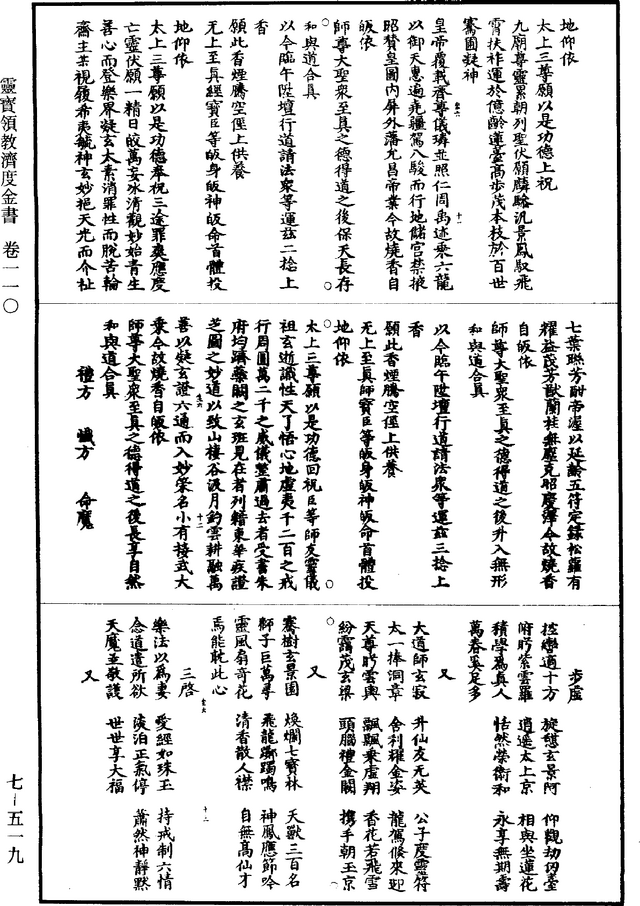 靈寶領教濟度金書 卷一一〇
七－五一九
地仰依
太上三尊願以是功德上祝
九廟尊靈累朝列聖伏願麟輅汎景鳳馭飛
霄扶祚運於億齡蓮臺高步茂本枝於百世
騫圃凝神
皇帝覆載齊尊儀璘並照仁周禹迹乘六龍
以御天惠遍堯疆駕八駿而行地儲宮禁掖
昭贊皇圖内屏外藩允昌帝業今故燒香自
皈依
師尊大聖衆至真之德得道之後保天長存
和與道合真
以今臨午陞壇行道請法衆等運兹二捻上
香
願此香煙騰空徑上供養
无上至真經寶臣等皈身皈神皈命首體投
地仰依
太上三尊願以是功德奉祝三途罪爽應度
亡靈伏願一精日皎萬妄冰清觀妙始青生
善心而登樂界凝玄太素消罪性而脫苦輪
齋主某視履希夷毓神玄妙挹天光而介祉
七葉聯芳酎帝渥以延齡五符定錄松蘿有
耀益茂芳猷蘭桂無壓克昭慶澤今故燒香
自皈依
師尊大聖衆至真之德得道之後升入無形
和與道合真
以今臨午陞壇行道請法衆等運兹三捻上
香
願此香煙騰空徑上供養
无上至真師寶臣等皈身皈神皈命首體投
地仰依
太上三尊願以是功德回祝臣等師友靈儀
祖玄逝識性天了悟心地虛夷千二百之戒
行周圓萬二千之威儀整肅過去者受書朱
府均躋蘂闕之玄班見在者列籍東華疾證
芝圖之妙道以致山棲谷汲月釣雲耕融萬
善以凝玄證六通而入妙策名小有接武大
乘今故燒香自皈依
師尊大聖衆至真之德得道之後長享自然
和與道合真
禮方 懺方 命魔
步虛
控轡適十方 旋憩玄景阿 仰觀劫仞臺
俯眄紫雲羅 逍遥太上京 相與坐蓮花
積學為真人 恬然榮衛和 永享無期壽
萬春奚足多
又
大道師玄寂 升仙友无英 公子度靈符
太一捧洞章 舍利耀金姿 龍駕倏來迎
天尊眄雲輿 飄飄乘虛翔 香花若飛雪
紛靄茂玄梁 頭腦禮金闕 攜手朝玉京
又
騫樹玄景園 煥爛七寶林 天獸三百名
獅子巨萬尋 飛龍躑躅鳴 神鳳應節吟
靈風扇奇花 清香散人襟 自無高仙才
焉能耽此心
三啓
樂法以為妻 愛經如珠玉 持戒制六情
念道遣所欲 淡泊正氣停 蕭然神靜默
天魔並敬護 世世享大福
又